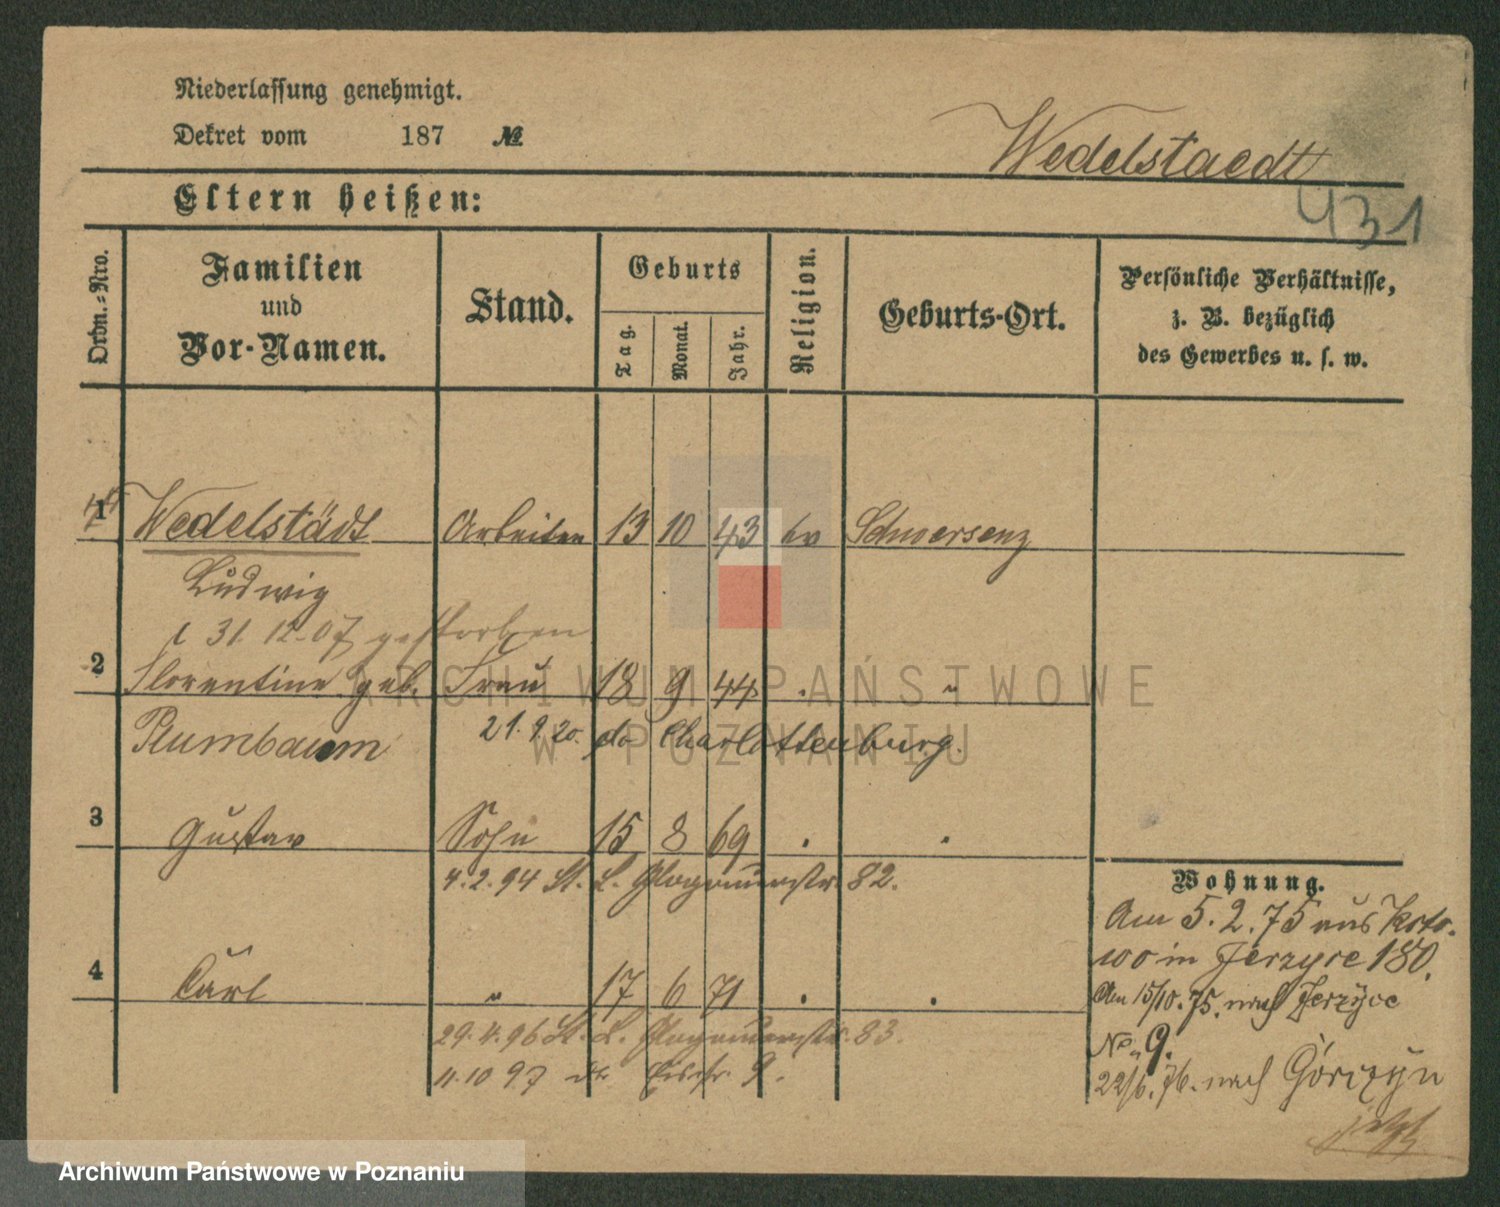 Niederlassung genehmigt.
Dekret vom 187 №
Wedelstaedt
431
Eltern heißen:
Ordn.-Nro.
Familien und Vor-Namen.
Stand.
Geburts
Tag.
Monat.
Jahr.
Religion.
Geburts-Ort.
Persönliche Verhältnisse,
z. B. bezüglich
des Gewerbes u. s. w.
1 Wedelstädt Arbeiter 13 10 43 ev Schwersenz
Ludwig
31. 12. 07 gestorben
2 Florentine geb. Frau 18 9 44 . "
Plumbaum 21. 9. 20. Charlottenburg.
3 Gustav Sohn 15 8 69 . .
4. 2. 94 St. L. Glogauerstr. 82.
4 Carl " 17 6 71 . .
29. 4. 96 St. L. Glogauerstr. 83.
11. 10 97 9.
Wohnung.
Am 5. 2. 75 aus Koto-
wo in Jerzyce 180.
Am 15/10. 75. nach Jerzyce
No 9.
22/6. 76. nach Górczyn
ARCHIWUM PAŃSTWOWE
W POZNANIU
Archiwum Państwowe w Poznaniu